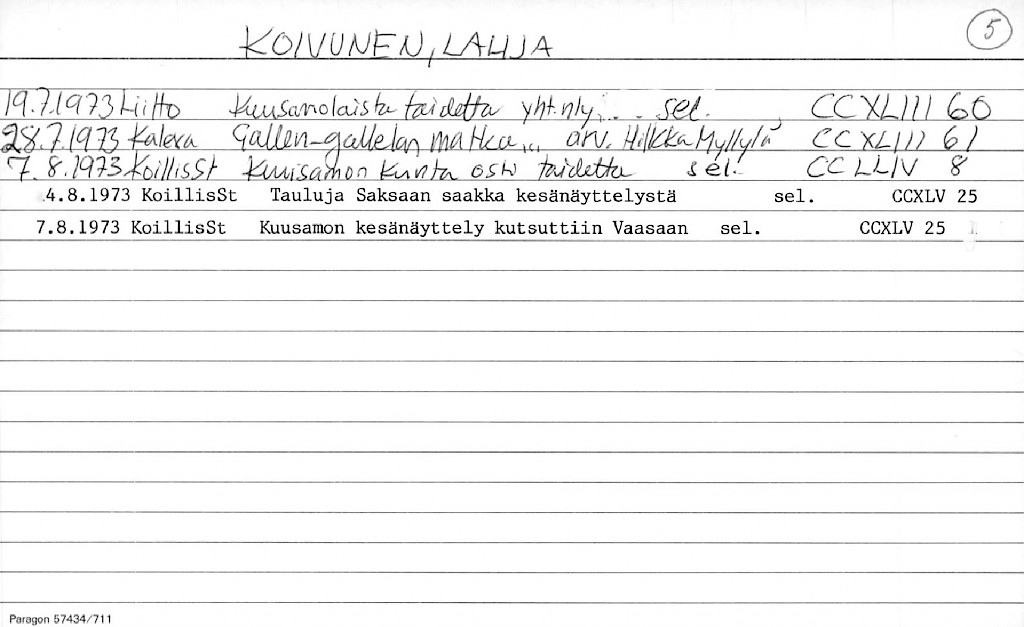 KOIVUNEN, LAHJA
5
19.7.1973 Liitto Kuusamolaista taidetta yht.nly... sel. CCXLIII 60
28.7.1973 Kaleva Gallen-gallelan matkaan... arv. Hilkka Myllylä CCXLIII 61
7.8.1973 KoillisSt Kuusamon kunta osti taidetta sel. CCLLIV 8
4.8.1973 KoillisSt Tauluja Saksaan saakka kesänäyttelystä sel. CCXLV 25
7.8.1973 KoillisSt Kuusamon kesänäyttely kutsuttiin Vaasaan sel. CCXLV 25
Paragon 57434/711